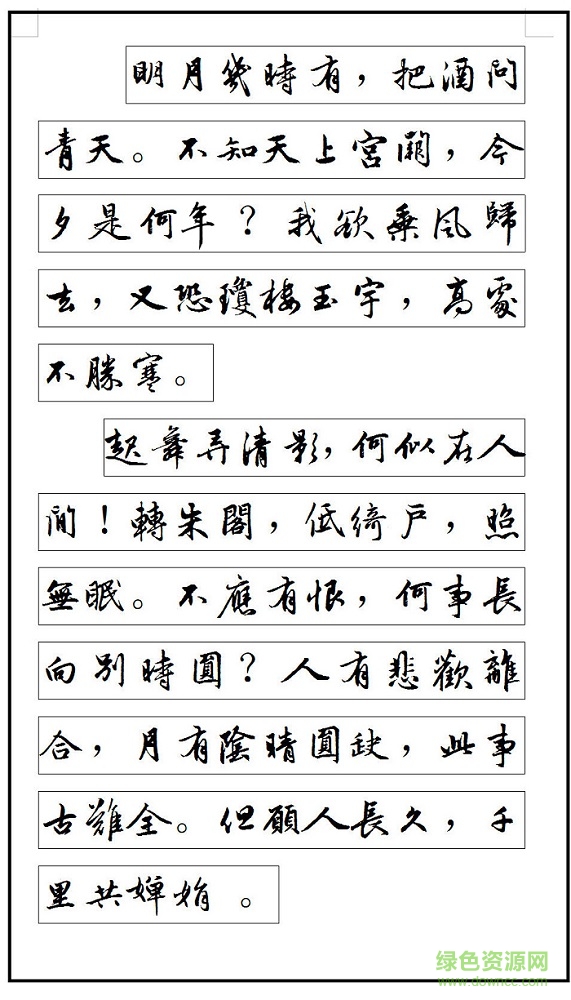 明月幾時有，把酒問
青天。不知天上宮闕，今
夕是何年？我欲乗風歸
去，又恐瓊樓玉宇，高處
不勝寒。
起舞弄清影，何似在人
間！轉朱閣，低綺戶，照
無眠。不應有恨，何事長
向別時圓？人有悲歡離
合，月有陰晴圓缺，此事
古難全。但願人長久，千
里共嬋娟。
绿色资源网
www.downcc.com